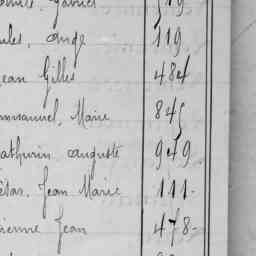 Gabriel 319
ules, ange 119
Jean Gilles 484
mmanuel, Marie 845
athurin auguste 949
ésar, Jean Marie 111-
tienne Jean 478-